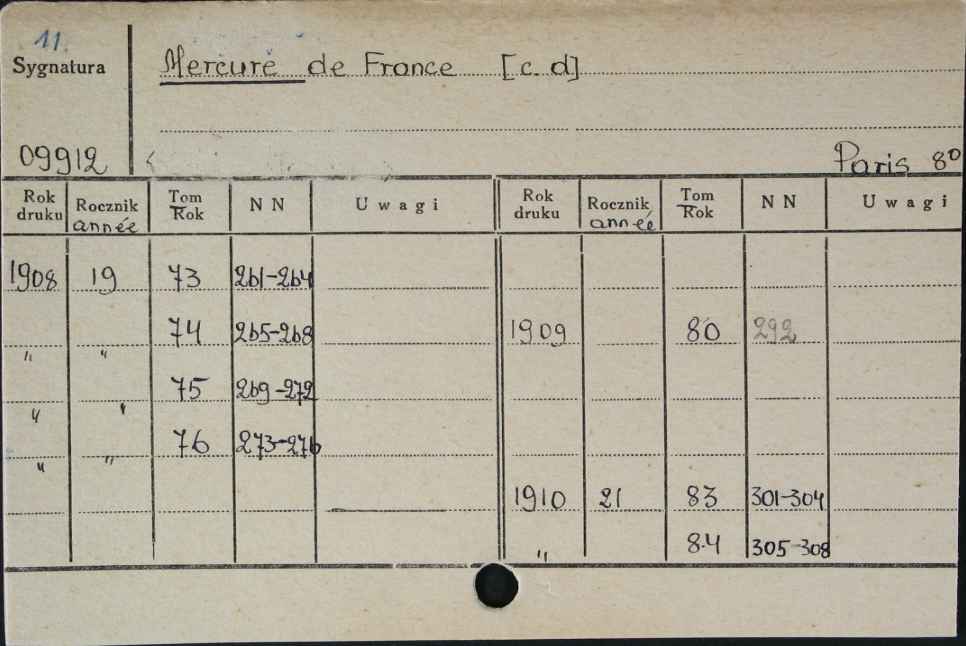 11.
Sygnatura
Mercure de France [c. d]
09912
Paris 8º
Rok druku Rocznik année Tom Rok NN Uwagi Rok druku Rocznik année Tom Rok NN Uwagi
1908 19 73 261-264
" " 74 265-268 1909 80 292
" " 75 269-272
" " 76 273-276
1910 21 83 301-304
" 84 305-308